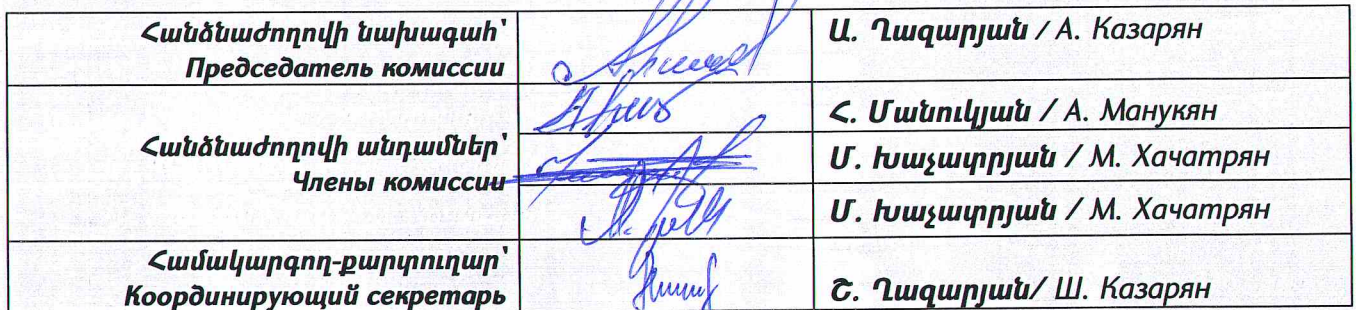 Հանձնաժողովի նախագահ՝
Председатель комиссии
Ա. Ղազարյան / А. Казарян
Հանձնաժողովի անդամներ՝
Члены комиссии
Հ. Մանուկյան / А. Манукян
Մ. Խաչատրյան / М. Хачатрян
Մ. Խաչատրյան / М. Хачатрян
Համակարգող-քարտուղար՝
Координирующий секретарь
Շ. Ղազարյան/ Ш. Казарян